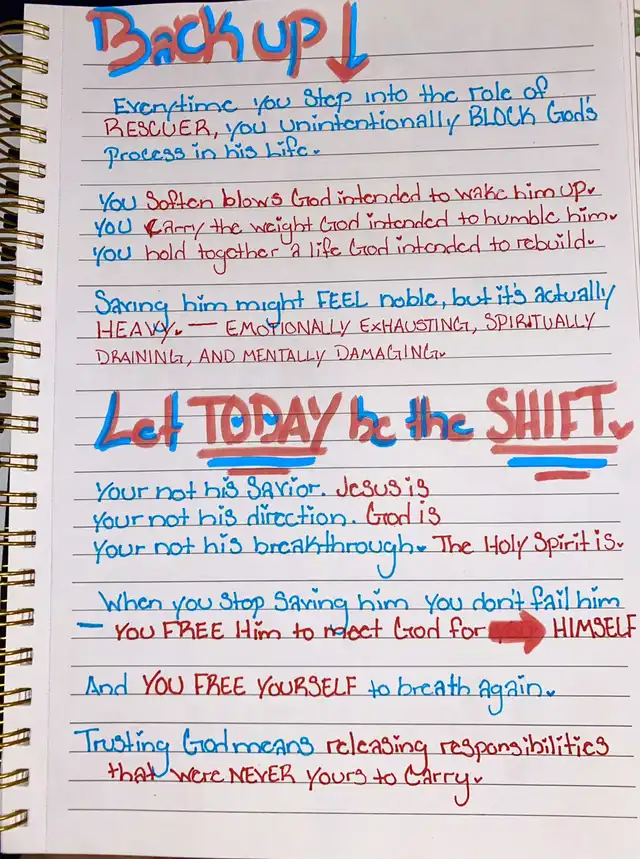 Back up ↓
Everytime you step into the role of
RESCUER, you unintentionally BLOCK God's
Process in his Life.
You Soften blows God intended to wake him up.
You Carry the weight God intended to humble him.
You hold together a life God intended to rebuild.
Saving him might FEEL noble, but it's actually
HEAVY. — EMOTIONALLY EXHAUSTING, SPIRITUALLY
DRAINING, AND MENTALLY DAMAGING.
Let TODAY be the SHIFT.
Your not his Savior. Jesus is
Your not his direction. God is
Your not his breakthrough. The Holy Spirit is.
When you stop Saving him you don't fail him
— YOU FREE Him to meet God for ➡ HIMSELF
And YOU FREE YOURSELF to breath again.
Trusting God means releasing responsibilities
that were NEVER Yours to Carry.